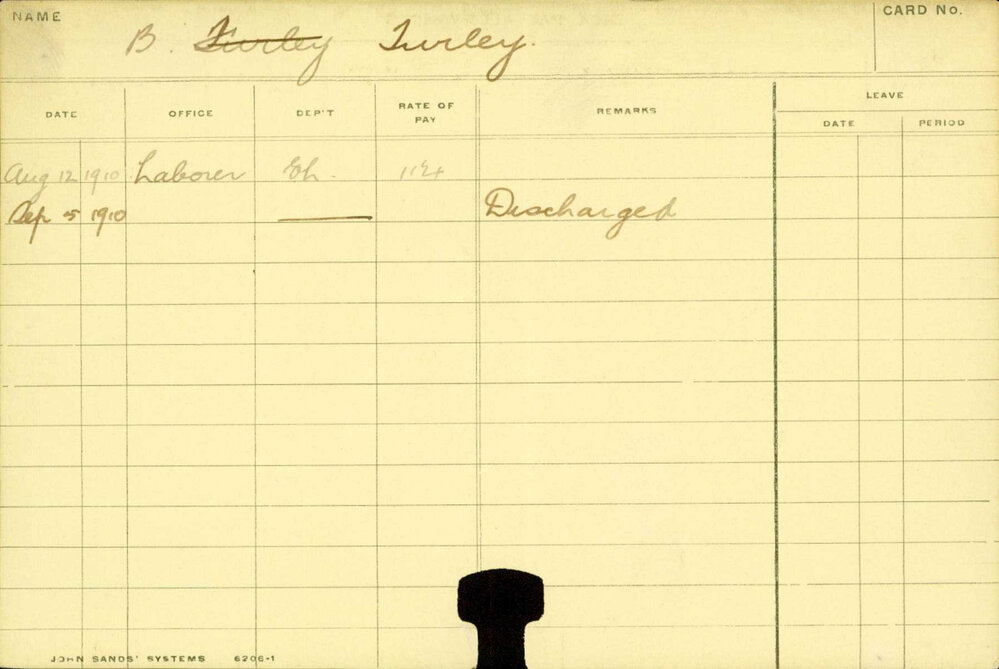 NAME
CARD No.
B. Furley Turley.
DATE OFFICE DEP'T RATE OF PAY REMARKS LEAVE
DATE PERIOD
Aug 12 1910 Laborer
Sep 5 1910 — Discharged
JOHN SANDS' SYSTEMS 6206-1